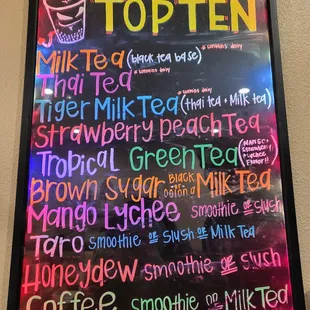 TOP TEN
Milk Tea (black tea base)
Thai Tea
Tiger Milk Tea (thai tea + Milk tea)
Strawberry Peach Tea
Tropical Green Tea
Brown Sugar Black Milk Tea
Mango Lychee smoothie or slush
Taro smoothie or slush or Milk Tea
Honeydew smoothie or slush
Coffee smoothie or Milk Tea